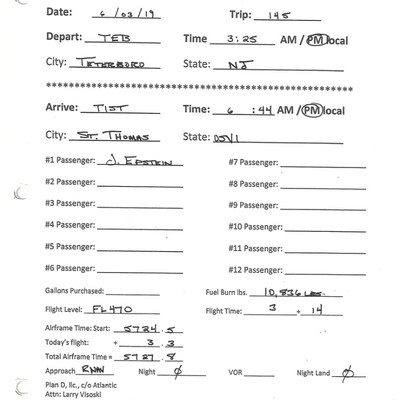 Date: 6/03/19 Trip: 145
Depart: TEB Time 3:25 AM / PM local
City: TETERBORO State: NJ
**************************************************
Arrive: TIST Time: 6:44 AM / PM local
City: ST. THOMAS State: USVI
#1 Passenger: J. EPSTEIN #7 Passenger:
#2 Passenger: #8 Passenger:
#3 Passenger: #9 Passenger:
#4 Passenger: #10 Passenger:
#5 Passenger: #11 Passenger:
#6 Passenger: #12 Passenger:
Gallons Purchased: Fuel Burn lbs. 10,836 LBS.
Flight Level: FL470 Flight Time: 3 + 14
Airframe Time: Start: 5724.5
Today's flight: + 3.3
Total Airframe Time = 5727.8
Approach RNAV Night Ø VOR Night Land Ø
Plan D, llc., c/o Atlantic
Attn: Larry Visoski